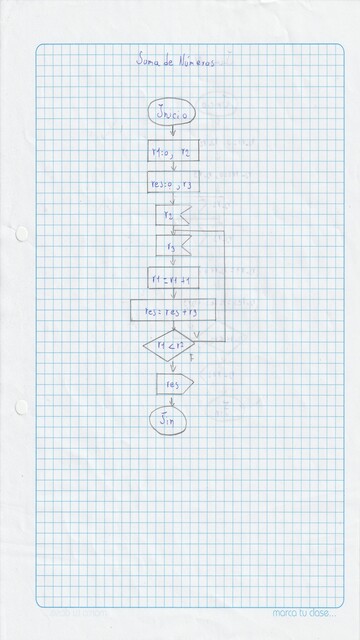 Suma de Números
Inicio
r1:0, r2
res:0, r3
r2
r3
r1=r1+1
res= res+r3
r1<r2
V
F
res
Fin
marca tu clase...